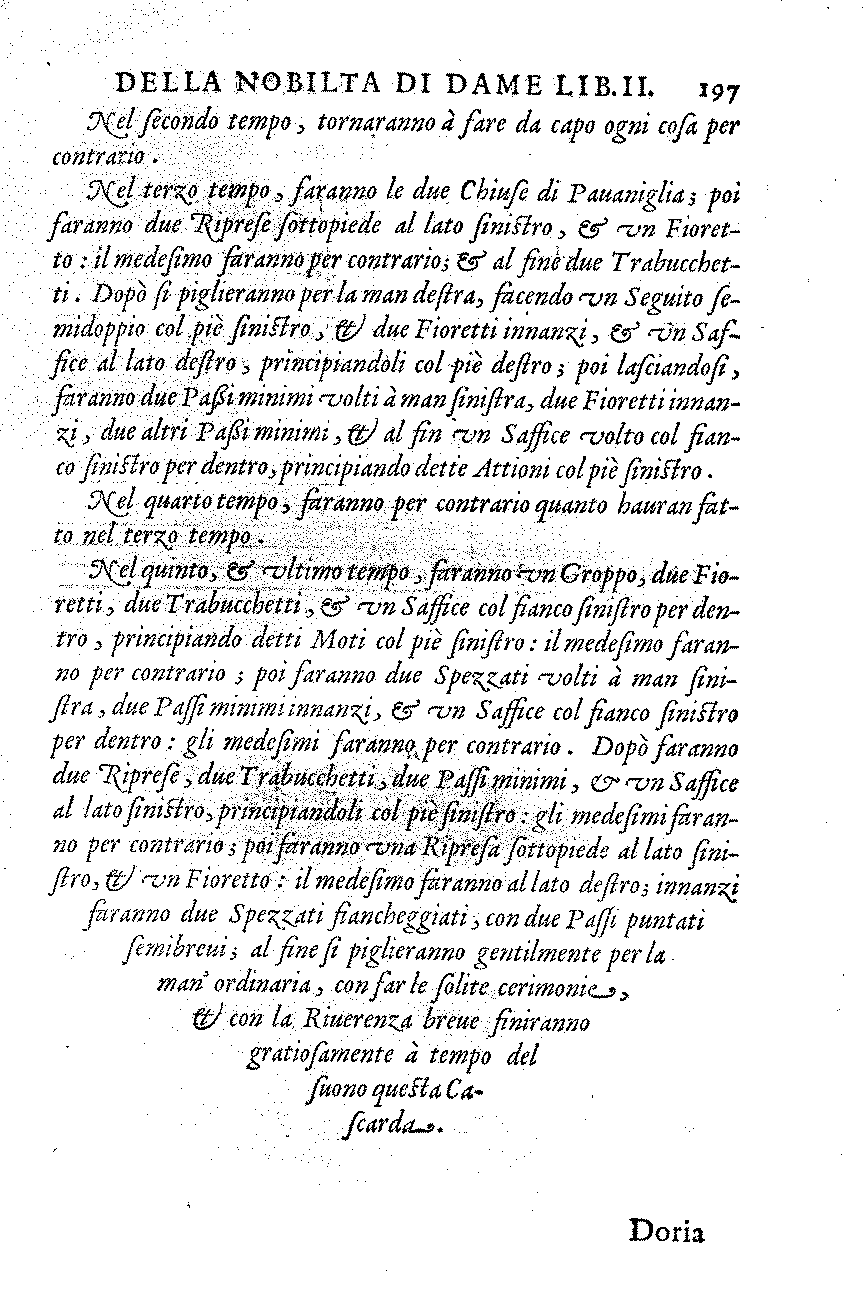 DELLA NOBILTA DI DAME LIB.II. 197
Nel ſecondo tempo, tornaranno à fare da capo ogni coſa per
contrario.
Nel terzo tempo, faranno le due Chiuſe di Pauaniglia; poi
faranno due Ripreſe ſottopiede al lato ſiniſtro, & vn Fioret-
to: il medeſimo faranno per contrario; & al fine due Trabucchet-
ti. Dopò ſi piglieranno per la man deſtra, facendo vn Seguito ſe-
midoppio col piè ſiniſtro, & due Fioretti innanzi, & vn Saf-
fice al lato deſtro, principiandoli col piè deſtro; poi laſciandoſi,
faranno due Paßi minimi volti à man ſiniſtra, due Fioretti innan-
zi, due altri Paßi minimi, & al fin vn Saffice volto col fian-
co ſiniſtro per dentro, principiando dette Attioni col piè ſiniſtro.
Nel quarto tempo, faranno per contrario quanto hauran fat-
to nel terzo tempo.
Nel quinto, & vltimo tempo, faranno vn Groppo, due Fio-
retti, due Trabucchetti, & vn Saffice col fianco ſiniſtro per den-
tro, principiando detti Moti col piè ſiniſtro: il medeſimo faran-
no per contrario; poi faranno due Spezzati volti à man ſini-
ſtra, due Paſſi minimi innanzi, & vn Saffice col fianco ſiniſtro
per dentro: gli medeſimi faranno per contrario. Dopò faranno
due Ripreſe, due Trabucchetti, due Paſſi minimi, & vn Saffice
al lato ſiniſtro, principiandoli col piè ſiniſtro: gli medeſimi faran-
no per contrario; poi faranno vna Ripreſa ſottopiede al lato ſini-
ſtro, & vn Fioretto: il medeſimo faranno al lato deſtro; innanzi
faranno due Spezzati fiancheggiati, con due Paſſi puntati
ſemibreui; al fine ſi piglieranno gentilmente per la
man' ordinaria, con far le ſolite cerimonie,
& con la Riuerenza breue finiranno
gratioſamente à tempo del
ſuono queſta Ca-
ſcarda.
Doria